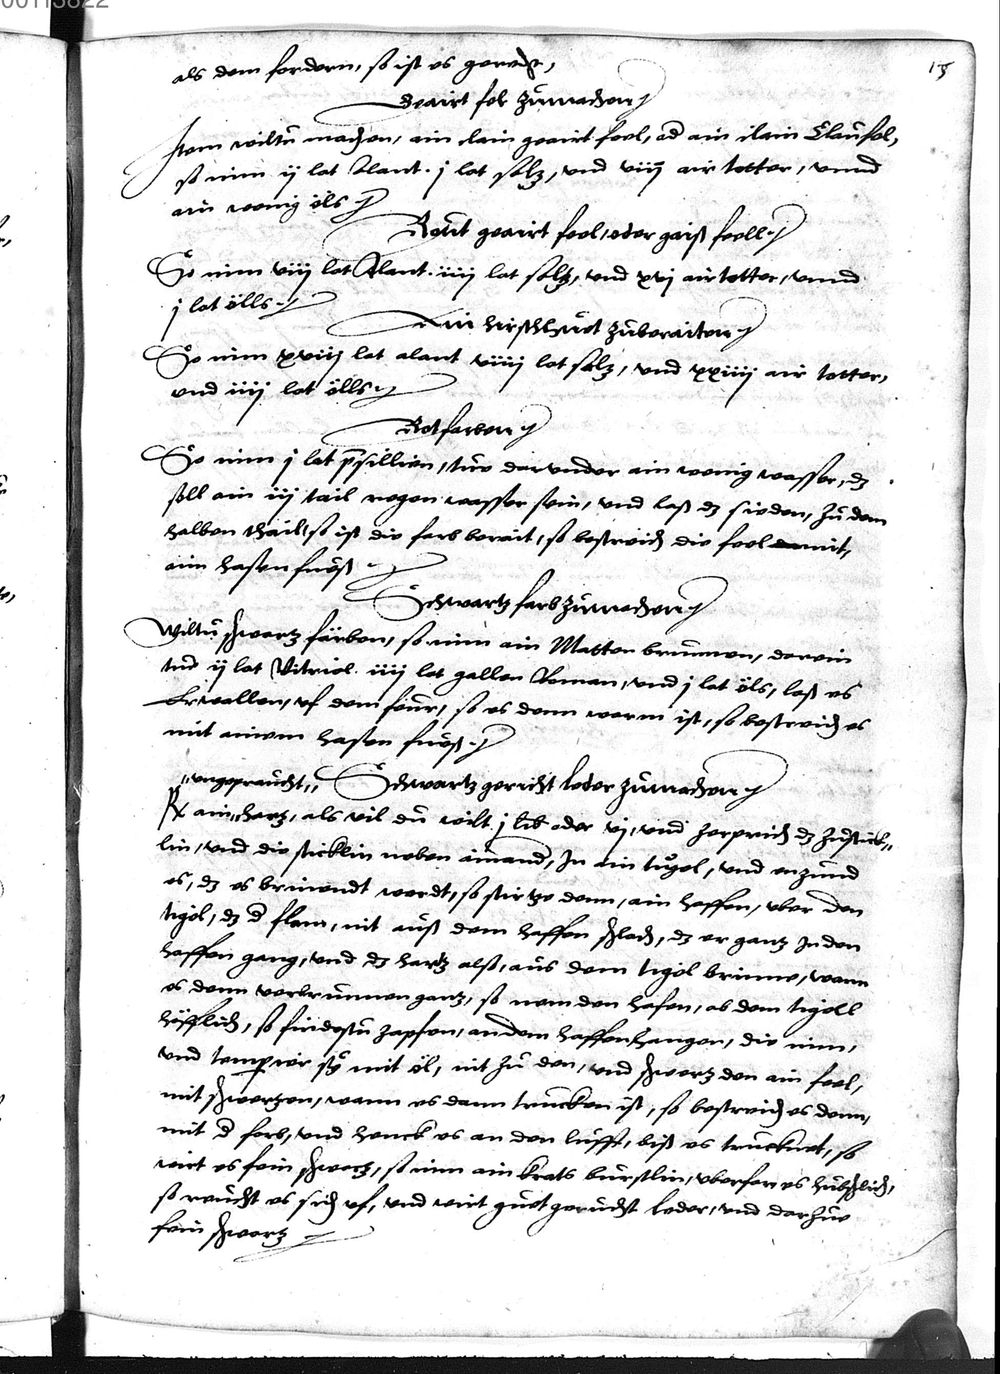 00115822
15
als dem fordern, so ist es gerecht,
Geairt fel zůmachen
Item wiltu machen, ain clain geairt feel, od ain clain
so nim ij lot Alant. j lot saltz, vnd viij air totter, vnnd
ain wenig öls
geairt feel, oder gaiß feell
So nim viij lot Alant. iiij lot saltz, vnd xvj air totter, vnnd
j lot ölls
Ain hirschhaut zůberaiten
So nim xviij lot alant viiij lot saltz, vnd xxiiij air totter,
vnd iiij lot ölls
Rotfarben
So nim j lot prisillien, tue darunder ain wenig wasser, dz
soll ain iij tail regen wasser sein, vnd laß dz sieden, zu dem
halben thail, so ist die farb berait, so bestreich die feel damit,
aim hasen fuoß
Schwartz farb zůmachen
Wiltu schwartz färben, so nim ain Matten brunnen, darein
tue ij lot Vitriol. iiij lot gallen Roman, vnd j lot öls, laß es
Erwallen, vf dem feur, so es denn warm ist, so bestreich es
mit ainem hasen fuoß.
vngepraucht,, Schwartz gericht leder zůmachen
Rx ain hartz, als vil du wilt j lib oder vj, vnd zerprich dz zu stick,,
lin, vnd die sticklin neben ainand, In ain tigel, vnd enzünd
es, dz es brinendt werdt, so stirtze denn, ain haffen, vber den
tigel, dz d flam, nit auß dem haffen schlach, dz er gantz In den
haffen gang, vnd dz hartz alß, aus dem tigel brinne, wann
es denn verbrunnen gantz, so nem den hafen, ab dem tigell
höfflich, so findestu zapfen, an dem haffen hangen, die nim,
vnd temperier sy mit öl, nit zu den, vnd schwartz den ain feel,
mit schwertzen, wann es dann trucken ist, so bestreich es denn,
mit d farb, vnd henck es an den lufft, biß es trucknet, so
wirt es fein schwartz, so nim ain krats burstlin, vberfar es hübschlich,
so reücht es sich vf, vnd wirt guet gereücht leder, vnd darzue
fein schwartz